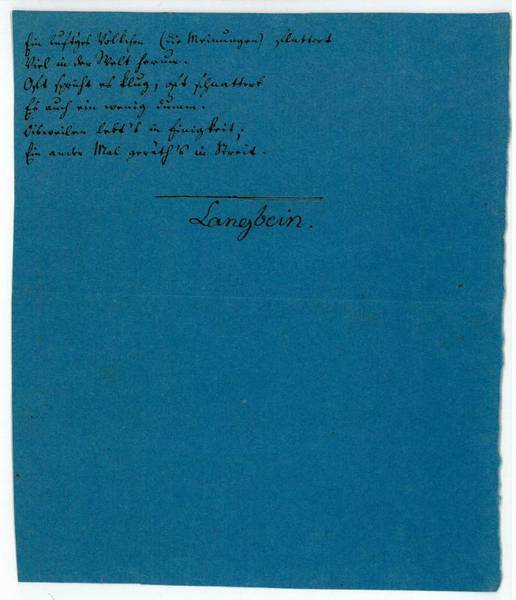 Ein luftges Völkchen (die Meinungen) flattert
Viel in der Welt herum.
Oft spricht es klug, oft schnattert
Es auch ein wenig dumm.
Bisweilen lebt's in Einigkeit,
Ein ander Mal geräth's in Streit.
Langbein.